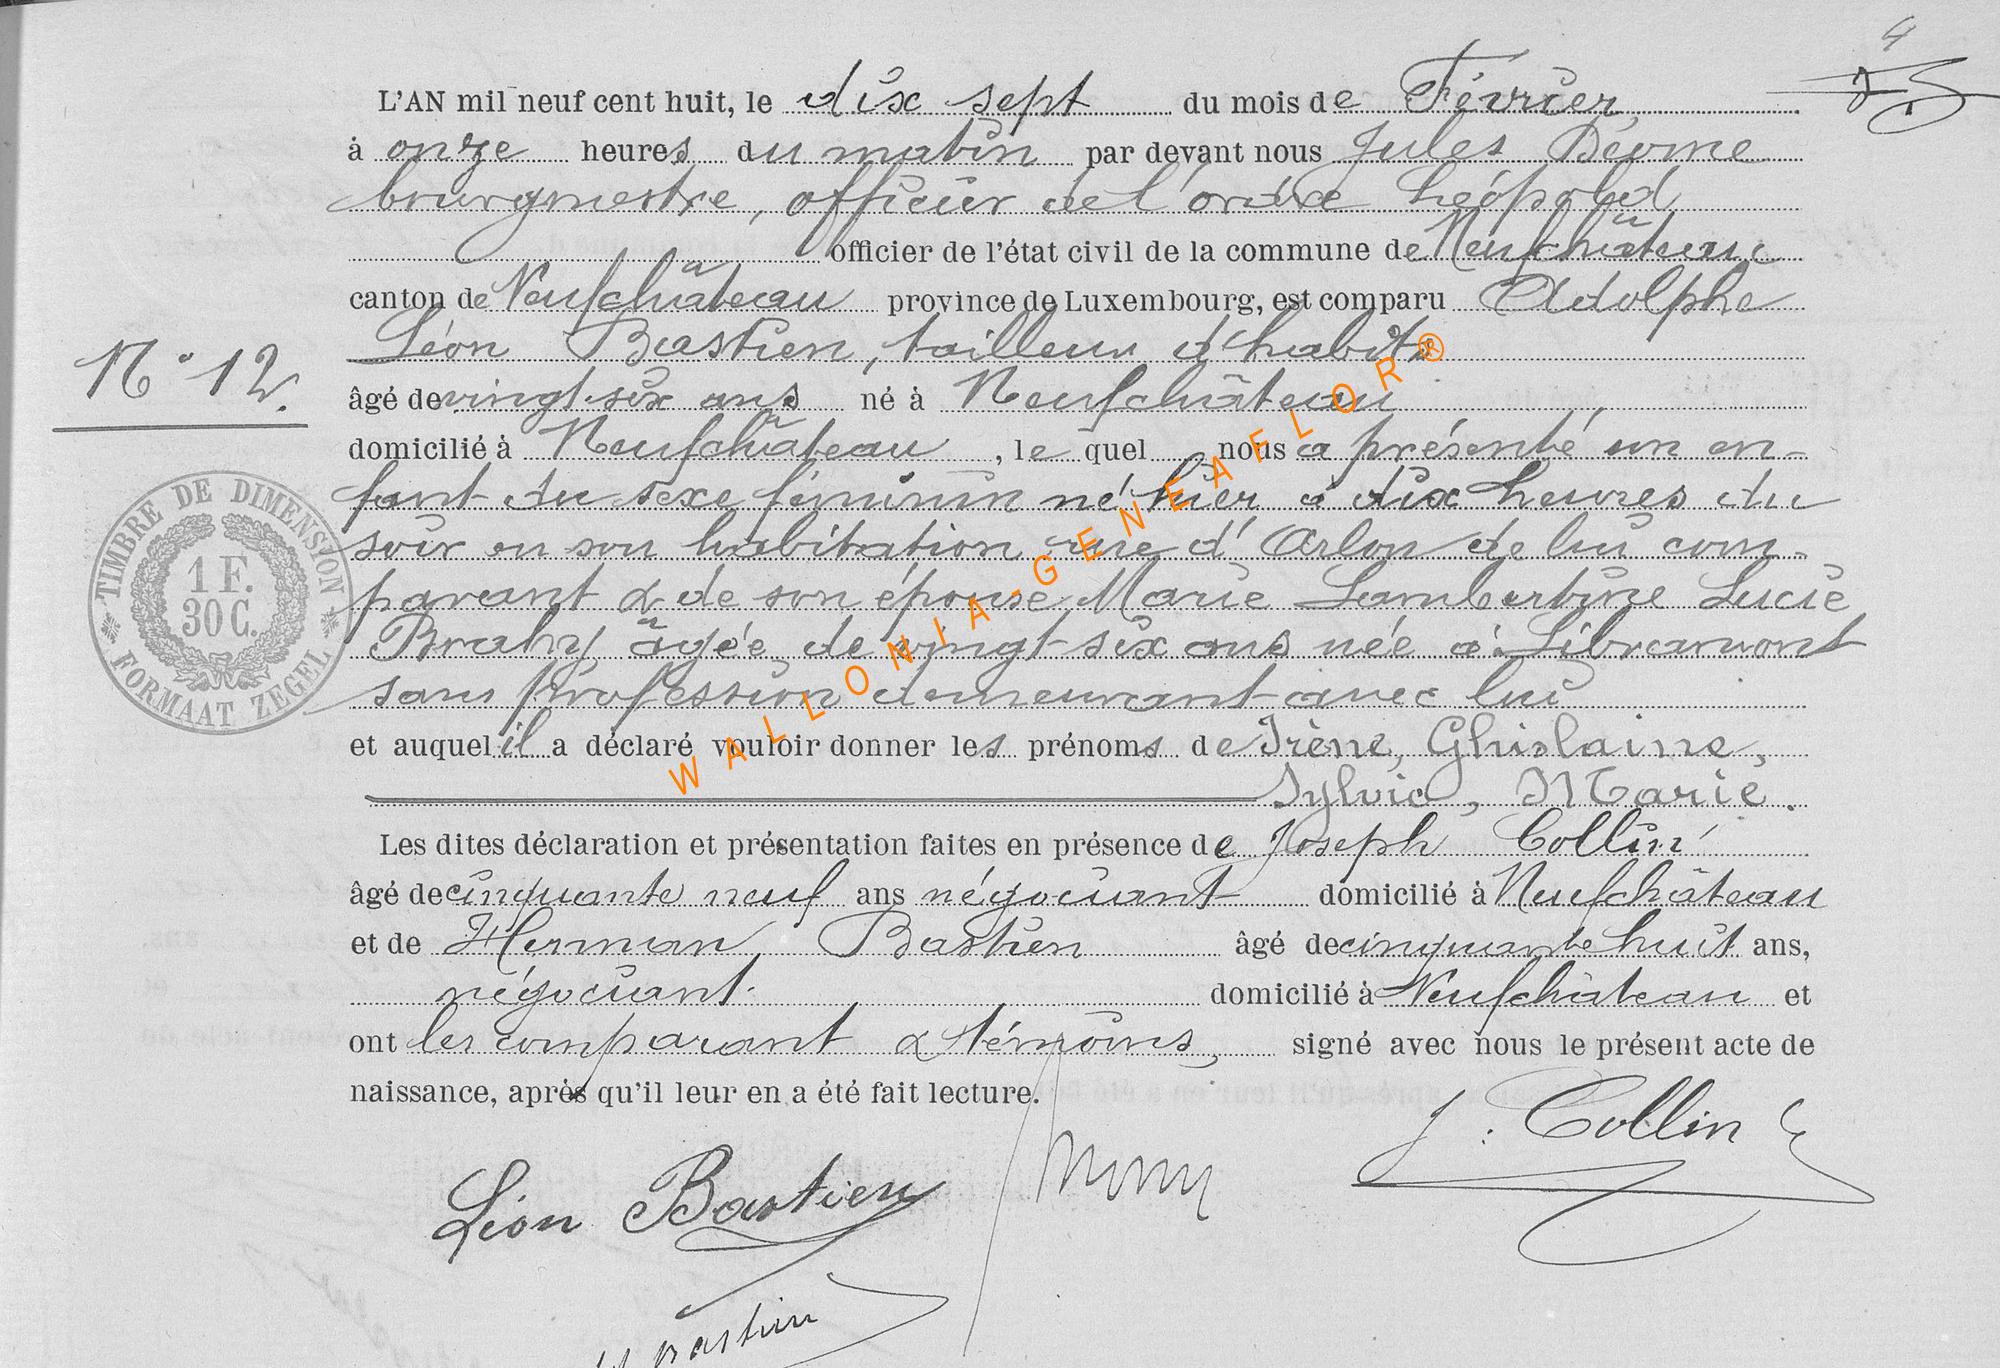 4
L'AN mil neuf cent huit, le dix sept du mois de Février,
à onze heures du matin par devant nous Jules
bourgmestre, officier de l'ordre Léopold
officier de l'état civil de la commune de Neufchâteau
canton de Neufchâteau province de Luxembourg, est comparu Adolphe
Léon Bastien, tailleur d'habits
N° 12.
âgé de vingt-six ans né à Neufchâteau
domicilié à Neufchâteau, le quel nous a présenté un en-
fant du sexe féminin né hier à dix heures du
soir en son habitation rue d'Arlon de lui com-
parant & de son épouse Marie Lambertine Lucie
Brahy âgée de vingt-six ans née à Libramont
sans profession demeurant avec lui
et auquel il a déclaré vouloir donner les prénoms de Irène, Ghislaine,
Sylvie, Marie.
Les dites déclaration et présentation faites en présence de Joseph Collin
âgé de cinquante neuf ans négociant domicilié à Neufchâteau
et de Herman Bastien âgé de cinquante huit ans,
négociant domicilié à Neufchâteau et
ont les comparant & témoins, signé avec nous le présent acte de
naissance, après qu'il leur en a été fait lecture.
J. Collin
Léon Bastien
Bastien
TIMBRE DE DIMENSION
1 F.
30 C.
FORMAAT ZEGEL
WALLONIA-GENEAFLOR®